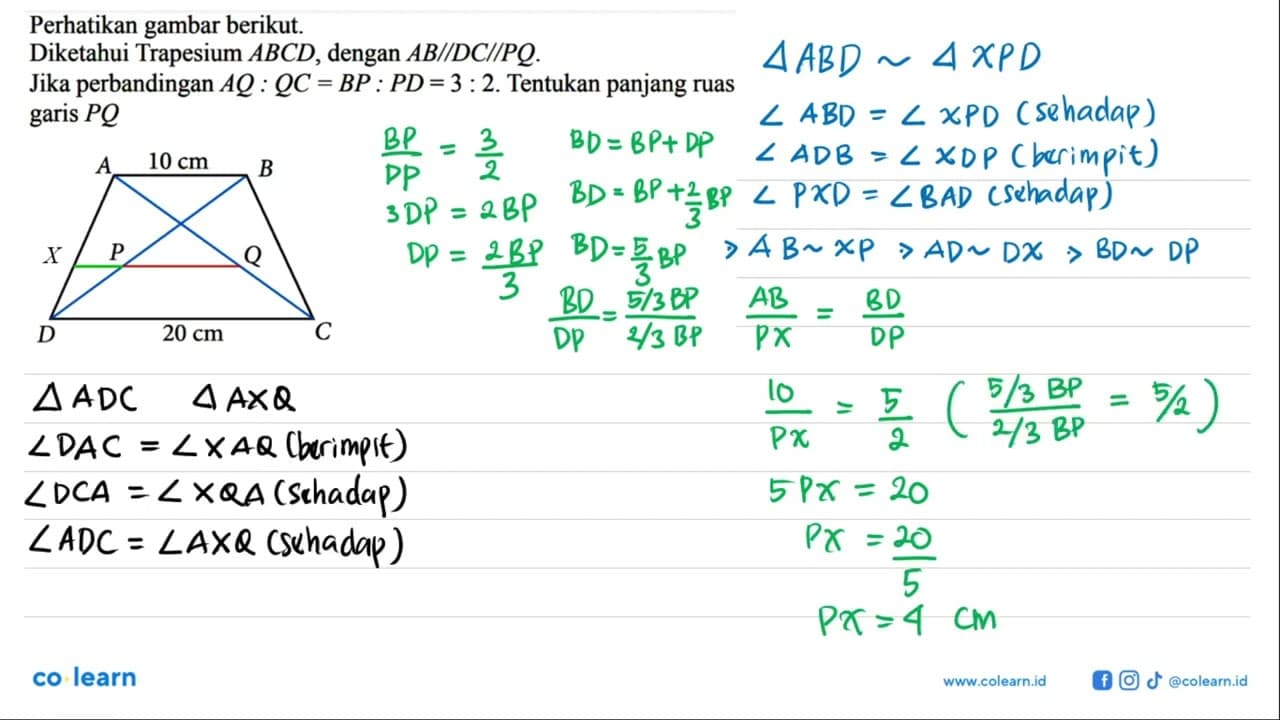 Perhatikan gambar berikut.
Diketahui Trapesium ABCD, dengan AB//DC//PQ.
Jika perbandingan AQ : QC = BP : PD = 3 : 2. Tentukan panjang ruas
garis PQ
A 10 cm B
X P Q
D 20 cm C
BP/DP = 3/2
3DP = 2BP
DP = 2BP/3
BD = BP + DP
BD = BP + 2/3 BP
BD = 5/3 BP
BD/DP = 5/3 BP / 2/3 BP
Δ ABD ~ Δ XPD
∠ ABD = ∠ XPD (sehadap)
∠ ADB = ∠ XDP (berimpit)
∠ PXD = ∠ BAD (sehadap)
> AB ~ XP > AD ~ DX > BD ~ DP
AB/PX = BD/DP
10/PX = 5/2 ( 5/3 BP / 2/3 BP = 5/2 )
5 PX = 20
PX = 20/5
PX = 4 cm
Δ ADC Δ AXQ
∠DAC = ∠XAQ (berimpit)
∠DCA = ∠XQA (sehadap)
∠ADC = ∠AXQ (sehadap)
co learn
www.colearn.id
@colearn.id